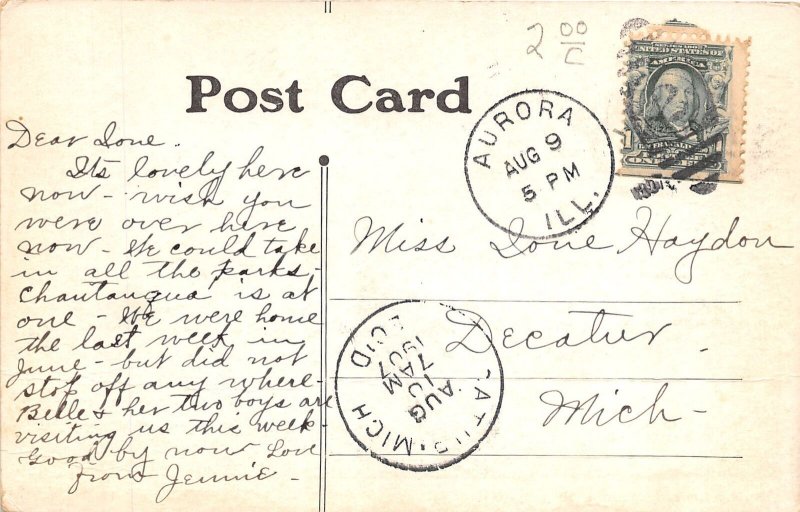 2 00/C
Post Card
SERIES 1902
UNITED STATES OF
AMERICA
1
FRANKLIN
ONE
AURORA
AUG 9
5 PM
ILL.
Dear Ione.
Its lovely here
now - wish you
were over here
now - We could take
in all the parks,
Chautauqua is at
one - We were home
the last week in
June - but did not
stop off any where -
Belle & her two boys are
visiting us this week -
Good by now Love
from Jennie -
Miss Ione Haydon
Decatur.
Mich -
MICH
REC'D
AUG
10
7 AM
1907